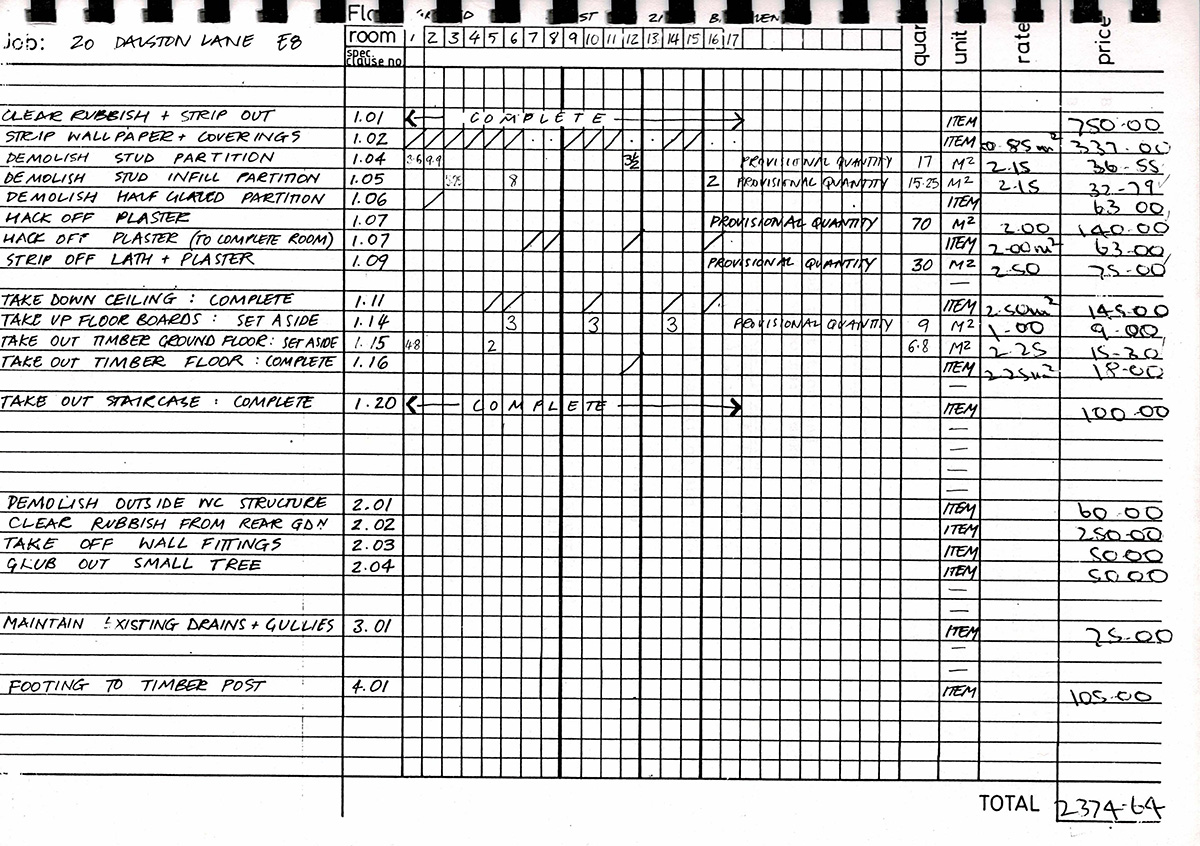 job: 20 DALSTON LANE E8
room 1 2 3 4 5 6 7 8 9 10 11 12 13 14 15 16 17 quan unit rate price
spec. clause no
CLEAR RUBBISH + STRIP OUT 1.01 COMPLETE ITEM 750.00
STRIP WALLPAPER + COVERINGS 1.02 ITEM 0.85m² 337.00
DEMOLISH STUD PARTITION 1.04 PROVISIONAL QUANTITY 17 M² 2.15 36-55
DEMOLISH STUD INFILL PARTITION 1.05 8 2 PROVISIONAL QUANTITY 15.25 M² 2.15 32-79
DEMOLISH HALF GLAZED PARTITION 1.06 ITEM 63 00
HACK OFF PLASTER 1.07 PROVISIONAL QUANTITY 70 M² 2.00 140.00
HACK OFF PLASTER (TO COMPLETE ROOM) 1.07 ITEM 2.00m² 63.00
STRIP OFF LATH + PLASTER 1.09 PROVISIONAL QUANTITY 30 M² 2.50 75-00
TAKE DOWN CEILING : COMPLETE 1.11 ITEM 2.50m² 145.00
TAKE UP FLOOR BOARDS : SET ASIDE 1.14 3 3 3 PROVISIONAL QUANTITY 9 M² 1.00 9.00
TAKE OUT TIMBER GROUND FLOOR : SET ASIDE 1.15 4.8 2 6.8 M² 2.25 15-30
TAKE OUT TIMBER FLOOR : COMPLETE 1.16 ITEM 2.25m² 18-00
TAKE OUT STAIRCASE : COMPLETE 1.20 COMPLETE ITEM 100.00
DEMOLISH OUTSIDE WC STRUCTURE 2.01 ITEM 60.00
CLEAR RUBBISH FROM REAR GDN 2.02 ITEM 250.00
TAKE OFF WALL FITTINGS 2.03 ITEM 50.00
GRUB OUT SMALL TREE 2.04 ITEM 50.00
MAINTAIN EXISTING DRAINS + GULLIES 3.01 ITEM 75.00
FOOTING TO TIMBER POST 4.01 ITEM 105.00
TOTAL 2374-64